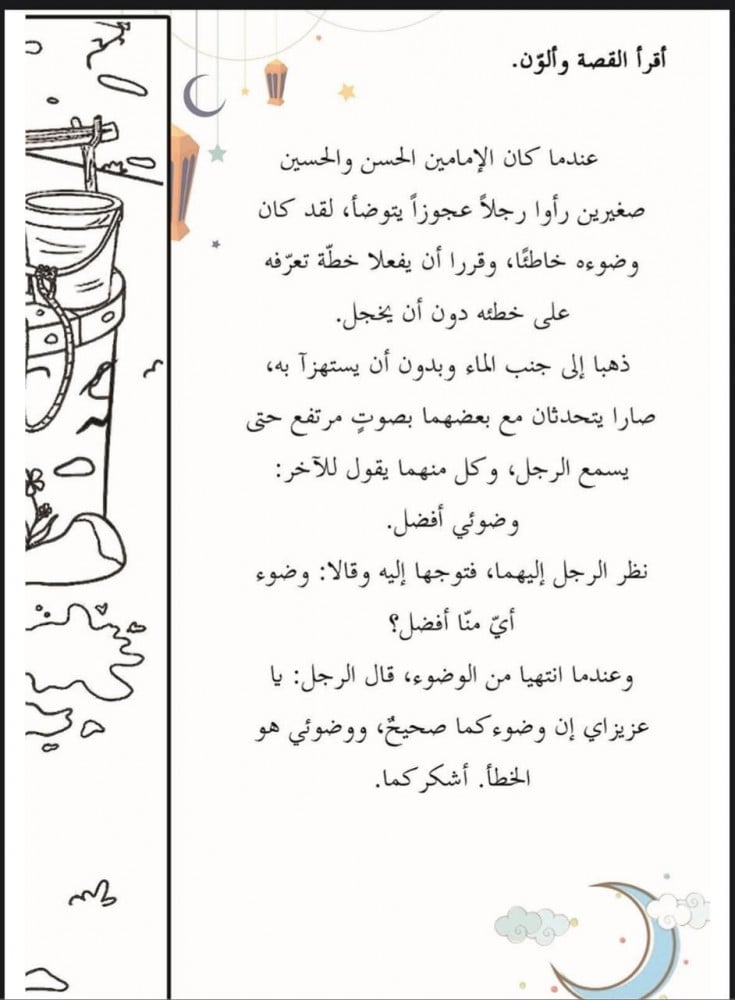 أقرأ القصة وألوّن.
عندما كان الإمامين الحسن والحسين
صغيرين رأوا رجلاً عجوزاً يتوضأ، لقد كان
وضوءه خاطئًا، وقررا أن يفعلا خطّة تعرّفه
على خطئه دون أن يخجل.
ذهبا إلى جنب الماء وبدون أن يستهزآ به،
صارا يتحدثان مع بعضهما بصوتٍ مرتفع حتى
يسمع الرجل، وكل منهما يقول للآخر:
وضوئي أفضل.
نظر الرجل إليهما، فتوجها إليه وقالا: وضوء
أيّ منّا أفضل؟
وعندما انتهيا من الوضوء، قال الرجل: يا
عزيزاي إن وضوءكما صحيحٌ، ووضوئي هو
الخطأ. أشكركما.